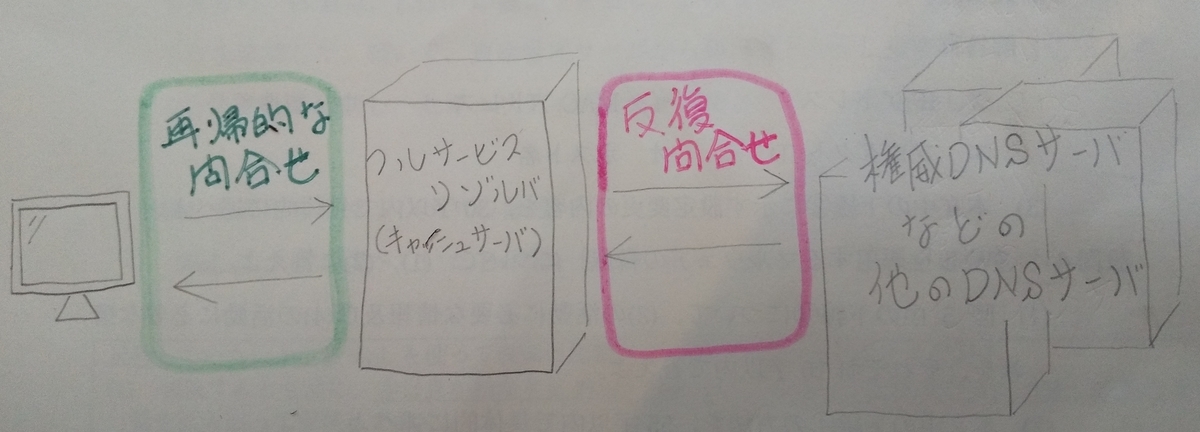 再帰的な
問合せ
フルサービス
リゾルバ
(キャッシュサーバ)
反復
問合せ
権威DNSサーバ
などの
他のDNSサーバ